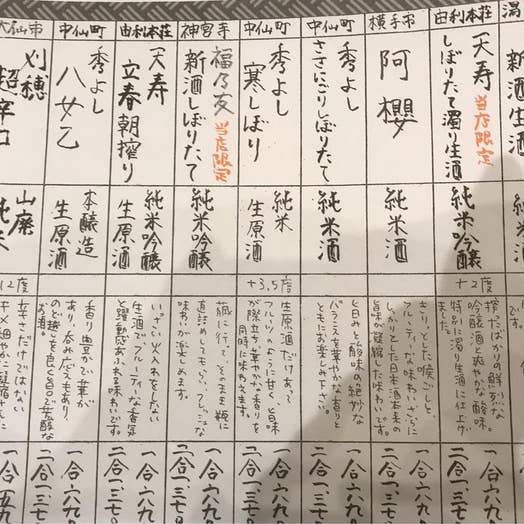 潟
新酒
生酒
由利本荘
天寿
当店限定
しぼりたて濁り生酒
純米吟醸
+2度
搾たばかりの鮮烈な
吟醸酒と爽やかな酸味。
特別に濁り生酒に仕上げ
ました。
一合 六八九
二合 一、三七
横手市
阿櫻
純米酒
きりっとした喉ごしと、
フルーティな味わい、さらに
しっかりとした日本酒本来の
旨味が凝縮した味わいです。
一合 六八九
二合 一、三七
中仙町
秀よし
ささにごりしぼりたて
純米酒
旨みと酸味の絶妙な
バランスを華やかな香りと
ともにお楽しみ下さい。
一合 六八九
二合 一、三七〇
中仙町
秀よし
寒しぼり
純米
生原酒
+3.5度
生原酒だけあって
フルーツのように甘く、旨味
が際立ち、華やかな香りを
同時に味わえます。
一合 六八九
二合 一、三七〇
神宮寺
福乃友
当店限定
新酒しぼりたて
純米吟醸
蔵に行って、そのまま瓶に
直詰めしてもらい、フレッシュな
味わいが楽しめます。
一合 六八九
二合 一、三七〇
由利本荘
天寿
立春朝搾り
純米吟醸
生原酒
いっさい火入れをしない
生酒で、フルーティな香気
と躍動感あふれる味わいです。
一合 六八九
二合 一、三七〇
中仙町
秀よし
八女乙
本醸造
生原酒
香り豊かで華が
あり、呑みんだうえもあり、
のど越しも良く旨口で芳醇な
お酒。
一合 六八九
二合 一、三七
大仙市
刈穂
超辛口
山廃
純米
12度
辛さだけではない
キメ細やかに凝縮さ
一合
二合 一、